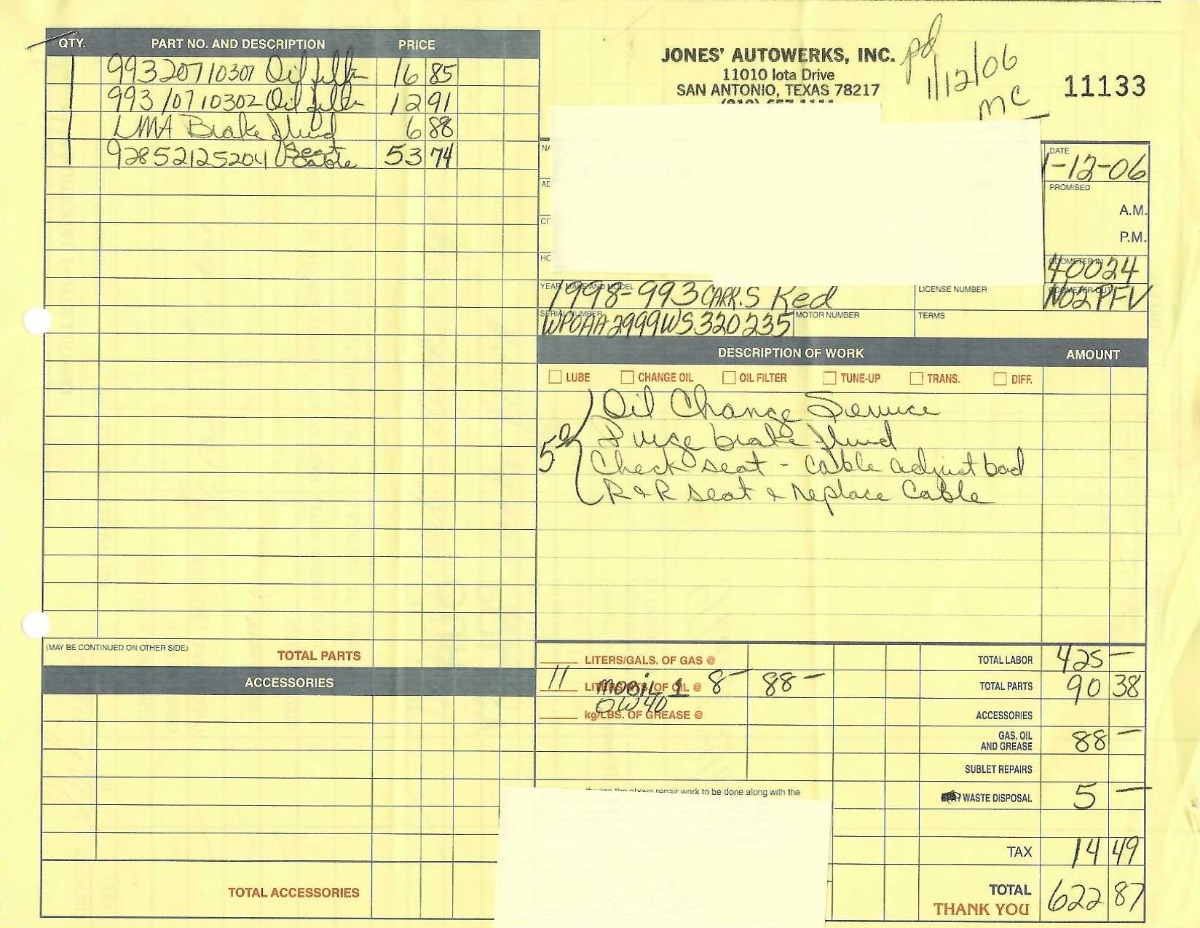 QTY. PART NO. AND DESCRIPTION PRICE
1 99320710307 Oil filter 16 85
1 99310710302 Oil filter 12 91
1 LMA Brake fluid 6 88
1 92852125204 Seat Cable 53 74
(MAY BE CONTINUED ON OTHER SIDE)
TOTAL PARTS
ACCESSORIES
TOTAL ACCESSORIES
JONES' AUTOWERKS, INC.
11010 Iota Drive
SAN ANTONIO, TEXAS 78217
pd
1/12/06
MC
11133
DATE
1-12-06
PROMISED
A.M.
P.M.
ODOMETER IN
40024
YEAR, MAKE AND MODEL
1998-993 CARR.S Red
LICENSE NUMBER
ODOMETER OUT
N02PFV
SERIAL NUMBER
WPOAA2999WS320235
MOTOR NUMBER
TERMS
DESCRIPTION OF WORK AMOUNT
LUBE CHANGE OIL OIL FILTER TUNE-UP TRANS. DIFF.
Oil Change Service
Purge brake fluid
Check seat - cable adjust bad
R & R seat & replace Cable
5.0
LITERS/GALS. OF GAS @
11 LITERS/QTS. OF OIL @ 8- 88-
Mobil 1
0W40
kg/LBS. OF GREASE @
the above repair work to be done along with the
TOTAL LABOR 425 -
TOTAL PARTS 90 38
ACCESSORIES
GAS, OIL AND GREASE 88 -
SUBLET REPAIRS
WASTE DISPOSAL 5 -
TAX 14 49
TOTAL 622 87
THANK YOU